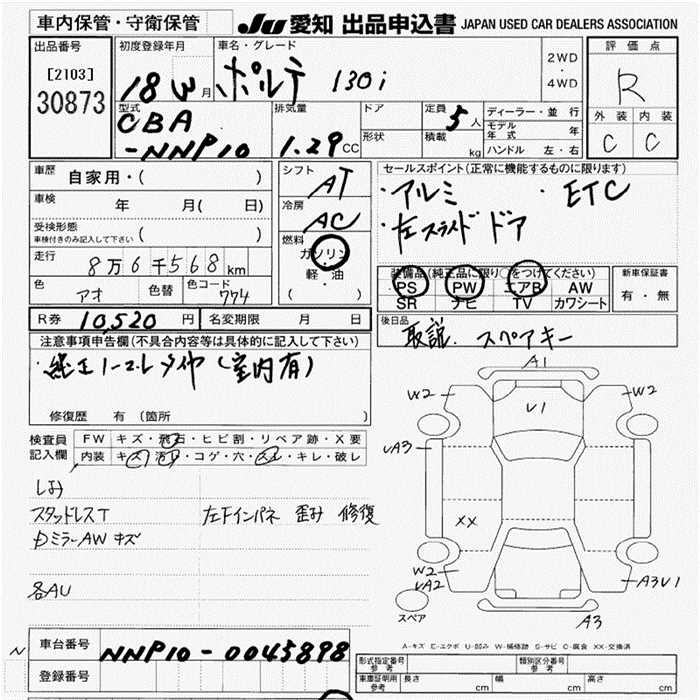 車内保管・守衛保管
JU 愛知 出品申込書 JAPAN USED CAR DEALERS ASSOCIATION
出品番号
[2103]
30873
初度登録年月
18 年 月
車名・グレード
ポルテ 130i
2WD
・
4WD
評価点
R
外装 内装
C C
型式
CBA
-NNP10
排気量
1.29 CC
ドア
形状
定員
5 人
積載
kg
ディーラー・並行
モデル年式 年
ハンドル 左・右
車歴 自家用・( )
車検 年 月( 日)
受検形態
車検付きのみ記入して下さい ( )
走行 8万6千568km
色 アオ 色替 色コード 774
シフト
AT
冷房
AC
燃料
ガソリン
軽・油
( )
セールスポイント(正常に機能するものに限ります)
・アルミ ・ETC
・左スライド ドア
装備品(純正品に限り○をつけてください)
PS PW エアB AW
SR ナビ TV カワシート
新車保証書
有・無
R券 10,520 円 名変期限 月 日
後日品
取説. スペアキー
注意事項申告欄(不具合内容等は具体的に記入して下さい)
・純正ノーマルタイヤ(室内有)
修復歴 有(箇所 )
検査員
記入欄
FW キズ・飛石・ヒビ割・リペア跡・X要
内装 キズ・汚れ・コゲ・穴・スレ・キレ・破レ
しみ
スタッドレスT 左下インパネ 歪み 修復
DミラーAW キズ
各AU
A1
W2
V1
W2
UA3
A3
XX
W2
UA2
A3V1
A3
スペア
A-キズ E-エクボ U-凹み W-補修跡 S-サビ C-腐食 XX-交換済
N
車台番号 NNP10-0045898
登録番号
形式指定番号
参考
類別区分番号
参考
車庫証明用
参考
長さ cm 幅 cm 高さ cm